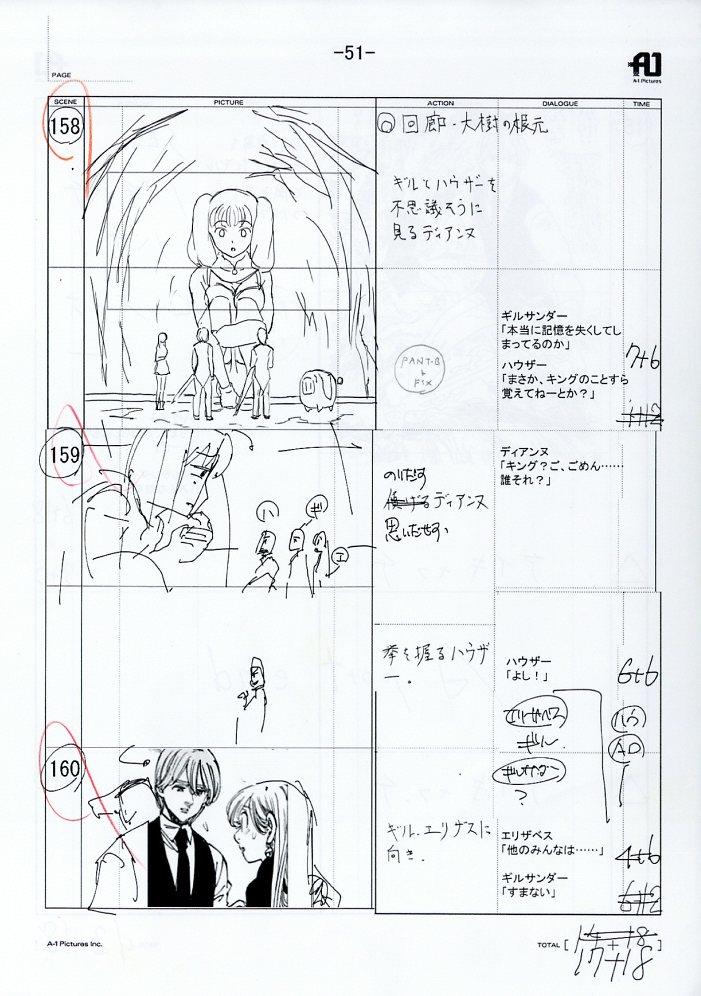 -51-
PAGE
A-1 Pictures
SCENE PICTURE ACTION DIALOGUE TIME
158
回廊・大樹の根元
ギルとハウザーを
不思議そうに
見るディアンヌ
ギルサンダー
「本当に記憶を失くしてし
まってるのか」
ハウザー
「まさか、キングのことすら
覚えてねーとか？」
PANT.B
FIX
7+6
159
ディアンヌ
「キング？ご、ごめん……
誰それ？」
ディアンヌ
思いだせず
ハ
ギ
エ
拳を握るハウザ
ー。
ハウザー
「よし！」
6+6
エリザベス
ギル
?
160
ギル、エリザベスに
向き.
エリザベス
「他のみんなは……」
4+6
ギルサンダー
「すまない」
A-1 Pictures Inc.
TOTAL [ ]
17+18